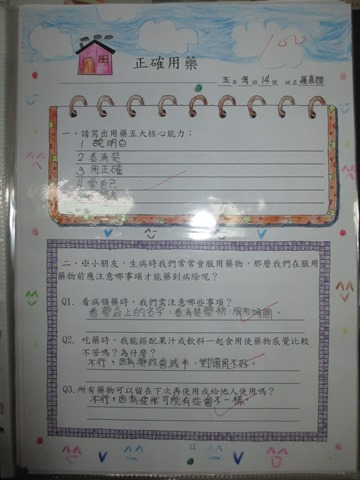 100
正確用藥
五年 班 14 號 姓名
一、請寫出用藥五大核心能力：
1 說明白
2 看清楚
3 用正確
4 愛自己
二、※小朋友，生病時我們常常會服用藥物，那麼我們在服用
藥物前應注意哪事項才能藥到病除呢？
Q1. 看病領藥時，我們需注意哪些事項？
看藥袋上的名字、看清楚藥物、服用時間。
Q2. 吃藥時，我能搭配果汁或飲料一起食用使藥物感覺比較
不苦嗎？為什麼？
不行，因為藥效會減半、對腸胃不好。
Q3.所有藥物可以留在下次再使用或給他人使用嗎？
不行，因為症狀可能有些會不一樣。
12